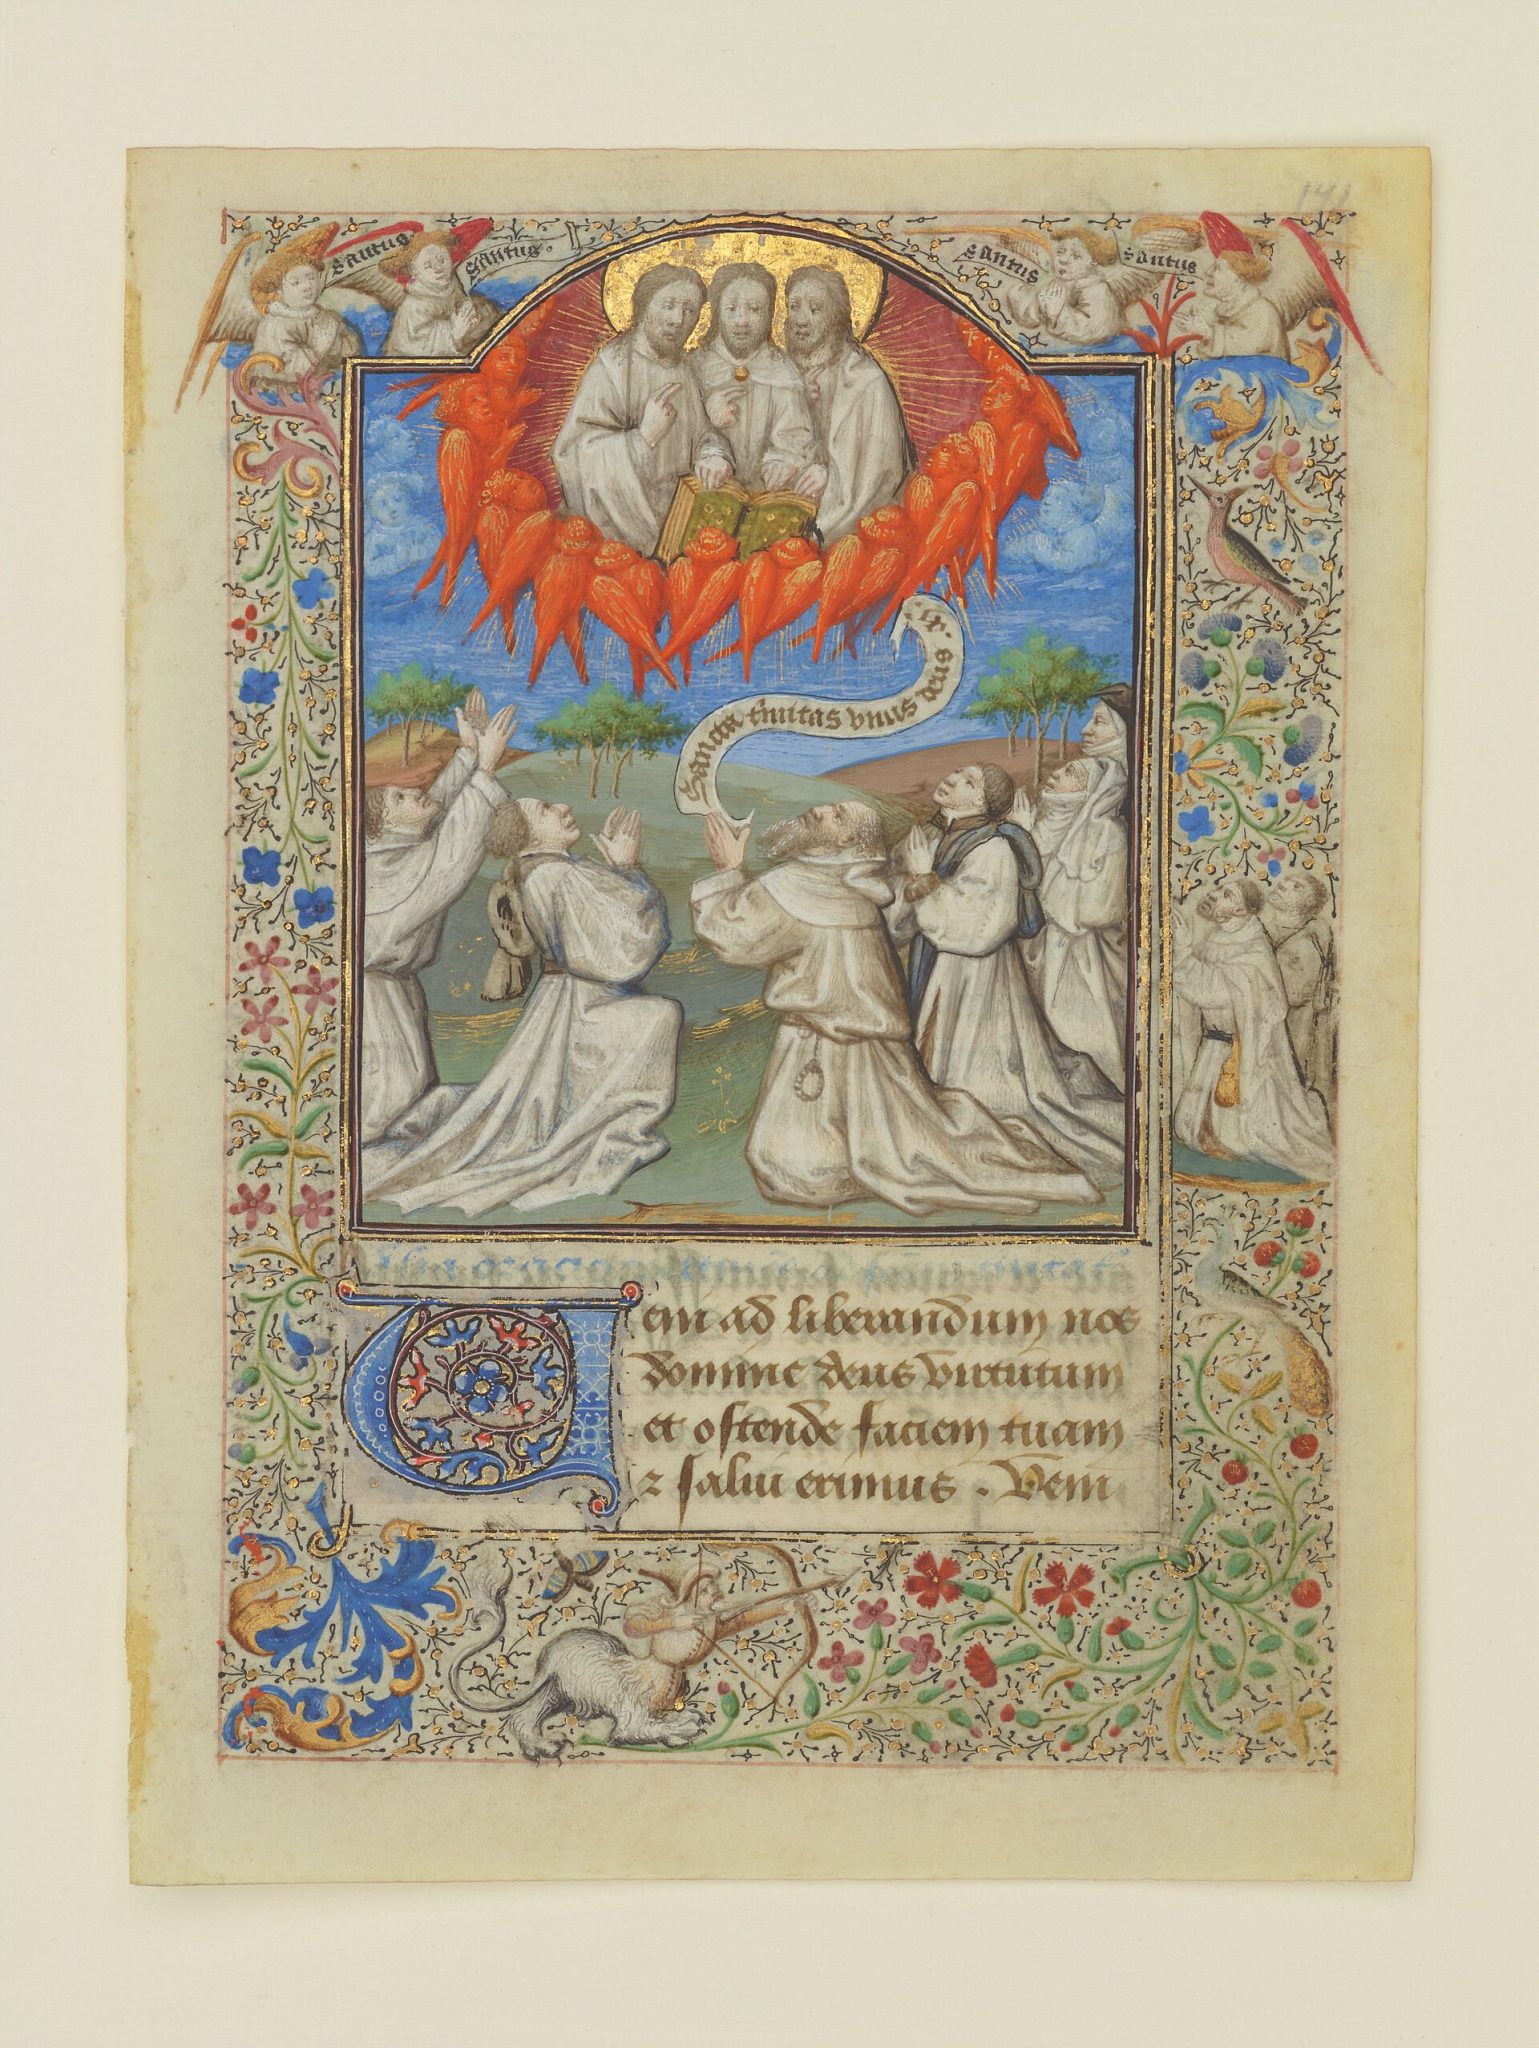 141
Sanctus
Sanctus
Sanctus
Sanctus
Sancta trinitas unus deus
Veni ad liberandum nos
domine deus virtutum
et ostende faciem tuam
⁊ salui erimus . Veni